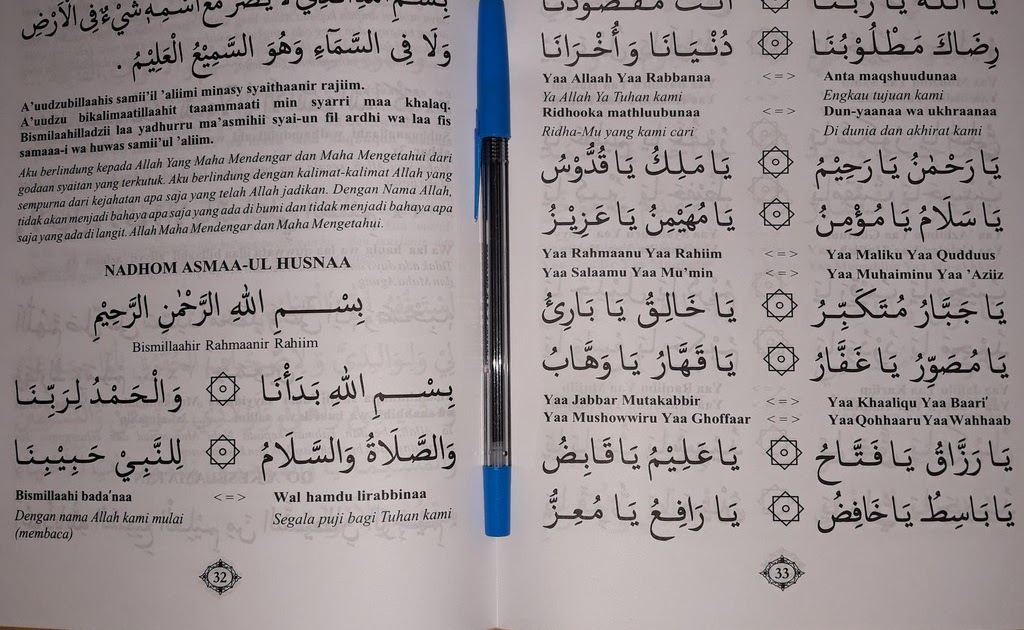 بِسْمِ اللهِ الَّذِيْ لَا يَضُرُّ مَعَ اسْمِهِ شَيْءٌ فِي الْأَرْضِ
وَلَا فِى السَّمَآءِ وَهُوَ السَّمِيْعُ الْعَلِيْمُ .
A'uudzubillaahis samii'il 'aliimi minasy syaithaanir rajiim.
A'uudzu bikalimaatillaahit taaammaati min syarri maa khalaq.
Bismilaahilladzii laa yadhurru ma'asmihii syai-un fil ardhi wa laa fis
samaaa-i wa huwas samii'ul 'aliim.
Aku berlindung kepada Allah Yang Maha Mendengar dan Maha Mengetahui dari
godaan syaitan yang terkutuk. Aku berlindung dengan kalimat-kalimat Allah yang
sempurna dari kejahatan apa saja yang telah Allah jadikan. Dengan Nama Allah,
tidak akan menjadi bahaya apa saja yang ada di bumi dan tidak menjadi bahaya apa
saja yang ada di langit. Allah Maha Mendengar dan Maha Mengetahui.
NADHOM ASMAA-UL HUSNAA
بِسْـــمِ اللهِ الرَّحْمٰنِ الرَّحِيْمِ
Bismillaahir Rahmaanir Rahiim
بِسْـــمِ اللهِ بَدَأْنَا ۞ وَالْحَمْدُ لِرَبِّنَا
وَالصَّلَاةُ وَالسَّلَامُ ۞ لِلنَّبِيْ حَبِيْبِنَا
Bismillaahi bada'naa <=> Wal hamdu lirabbinaa
Dengan nama Allah kami mulai Segala puji bagi Tuhan kami
(membaca)
32
يَا اَللهُ يَا رَبَّنَا اَنْتَ مَقْصُوْدُنَا
رِضَاكَ مَطْلُوْبُنَا ۞ دُنْيَانَا وَأُخْرَانَا
Yaa Allaah Yaa Rabbanaa <=> Anta maqshuudunaa
Ya Allah Ya Tuhan kami Engkau tujuan kami
Ridhooka mathluubunaa <=> Dun-yaanaa wa ukhraanaa
Ridha-Mu yang kami cari Di dunia dan akhirat kami
يَا رَحْمٰنُ يَا رَحِيْمُ ۞ يَا مَلِكُ يَا قُدُّوْسُ
يَا سَلَامُ يَا مُؤْمِنُ ۞ يَا مُهَيْمِنُ يَا عَزِيْزُ
Yaa Rahmaanu Yaa Rahiim <=> Yaa Maliku Yaa Qudduus
Yaa Salaamu Yaa Mu'min <=> Yaa Muhaiminu Yaa 'Aziiz
يَا جَبَّارُ مُتَكَبِّرُ ۞ يَا خَالِقُ يَا بَارِئُ
يَا مُصَوِّرُ يَا غَفَّارُ ۞ يَا قَهَّارُ يَا وَهَّابُ
Yaa Jabbar Mutakabbir <=> Yaa Khaaliqu Yaa Baari'
Yaa Mushowwiru Yaa Ghoffaar <=> Yaa Qohhaaru Yaa Wahhaab
يَا رَزَّاقُ يَا فَتَّاحُ ۞ يَا عَلِيْمُ يَا قَابِضُ
يَا بَاسِطُ يَا خَافِضُ ۞ يَا رَافِعُ يَا مُعِزُّ
33